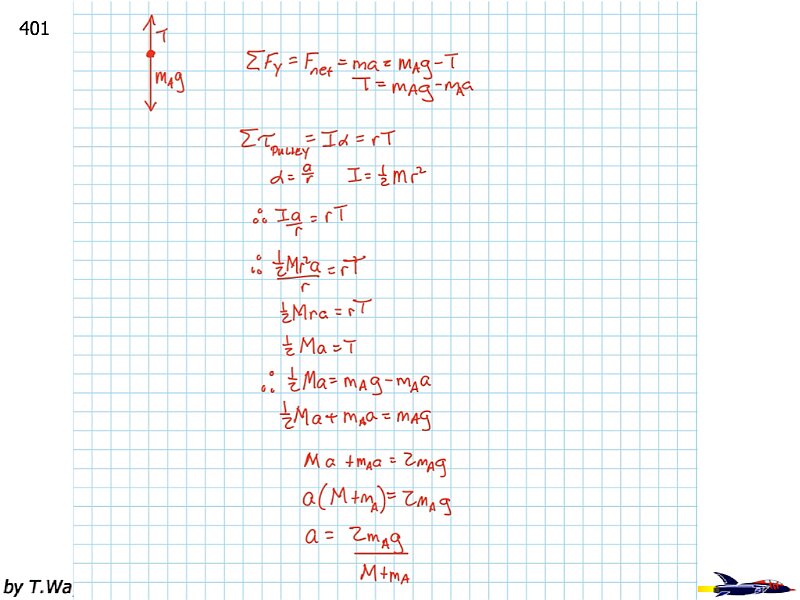 401
T
mAg
ΣFy = Fnet = ma = mAg - T
T = mAg - mAa
Στpulley = Iα = rT
α = a/r   I = ½Mr²
∴ Ia/r = rT
∴ ½Mr²a/r = rT
½Mra = rT
½Ma = T
∴ ½Ma = mAg - mAa
½Ma + mAa = mAg
Ma + mAa = 2mAg
a(M+mA) = 2mAg
a = 2mAg/M+mA
by T.Wa